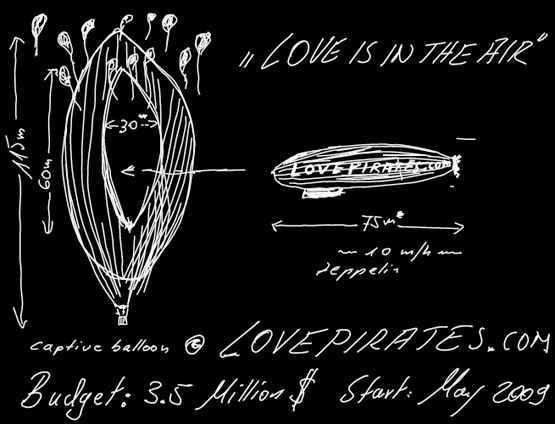 „LOVE IS IN THE AIR"
115m
60m
30m
LOVEPIRATES.com
75m
~ 10 m/h ~
zeppelin
captive balloon @ LOVEPIRATES.COM
Budget: 3.5 Million $ Start: May 2009